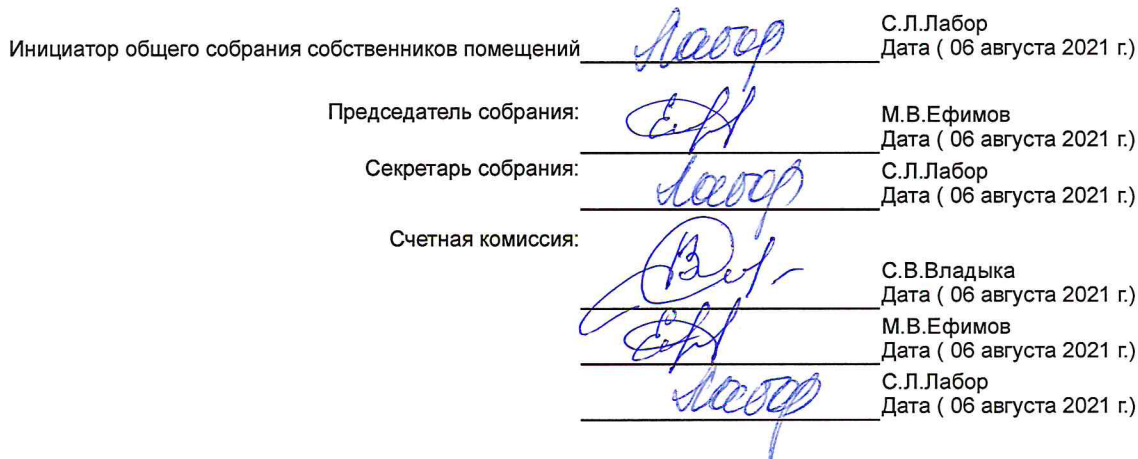 С.Л.Лабор
Инициатор общего собрания собственников помещений Лабор Дата ( 06 августа 2021 г.)
Председатель собрания: М.В.Ефимов
Дата ( 06 августа 2021 г.)
Секретарь собрания: С.Л.Лабор
Лабор Дата ( 06 августа 2021 г.)
Счетная комиссия:
С.В.Владыка
Дата ( 06 августа 2021 г.)
М.В.Ефимов
Дата ( 06 августа 2021 г.)
С.Л.Лабор
Лабор Дата ( 06 августа 2021 г.)